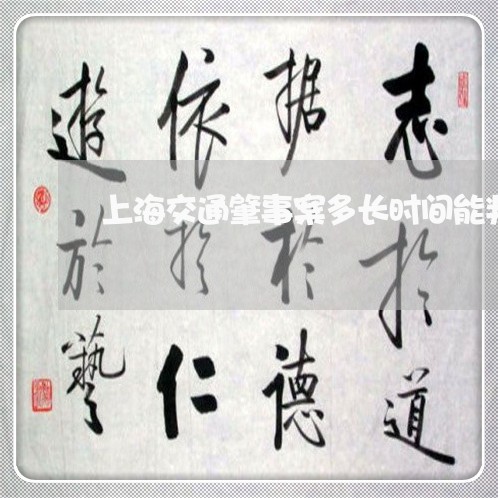 志於道
据於德
依於仁
遊於藝
上海交通肇事案多长时间能